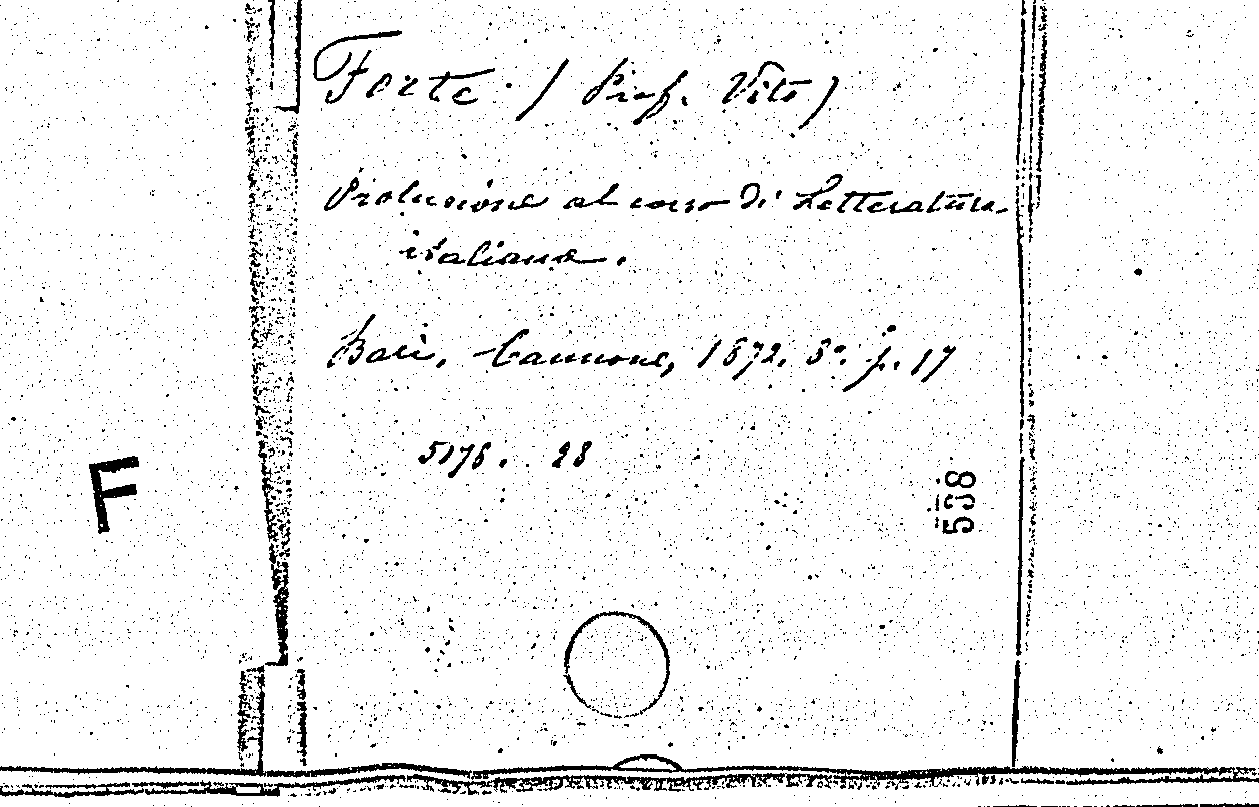 Forte (Prof. Vito)
Prolusione al corso di Letteratura
italiana.
Bari, Cannone, 1872. 8°. p. 17
5176. 28
F
538